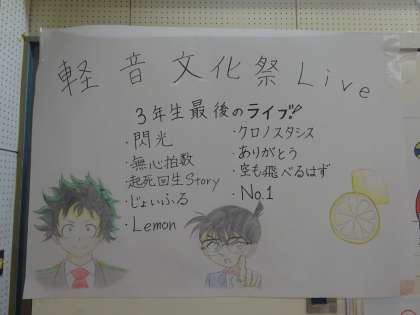 軽音文化祭Live
3年生最後のライブ!!
・閃光
・無心拍数
・起死回生Story
・じょいふる
・Lemon
・クロノスタシス
・ありがとう
・空も飛べるはず
・No.1